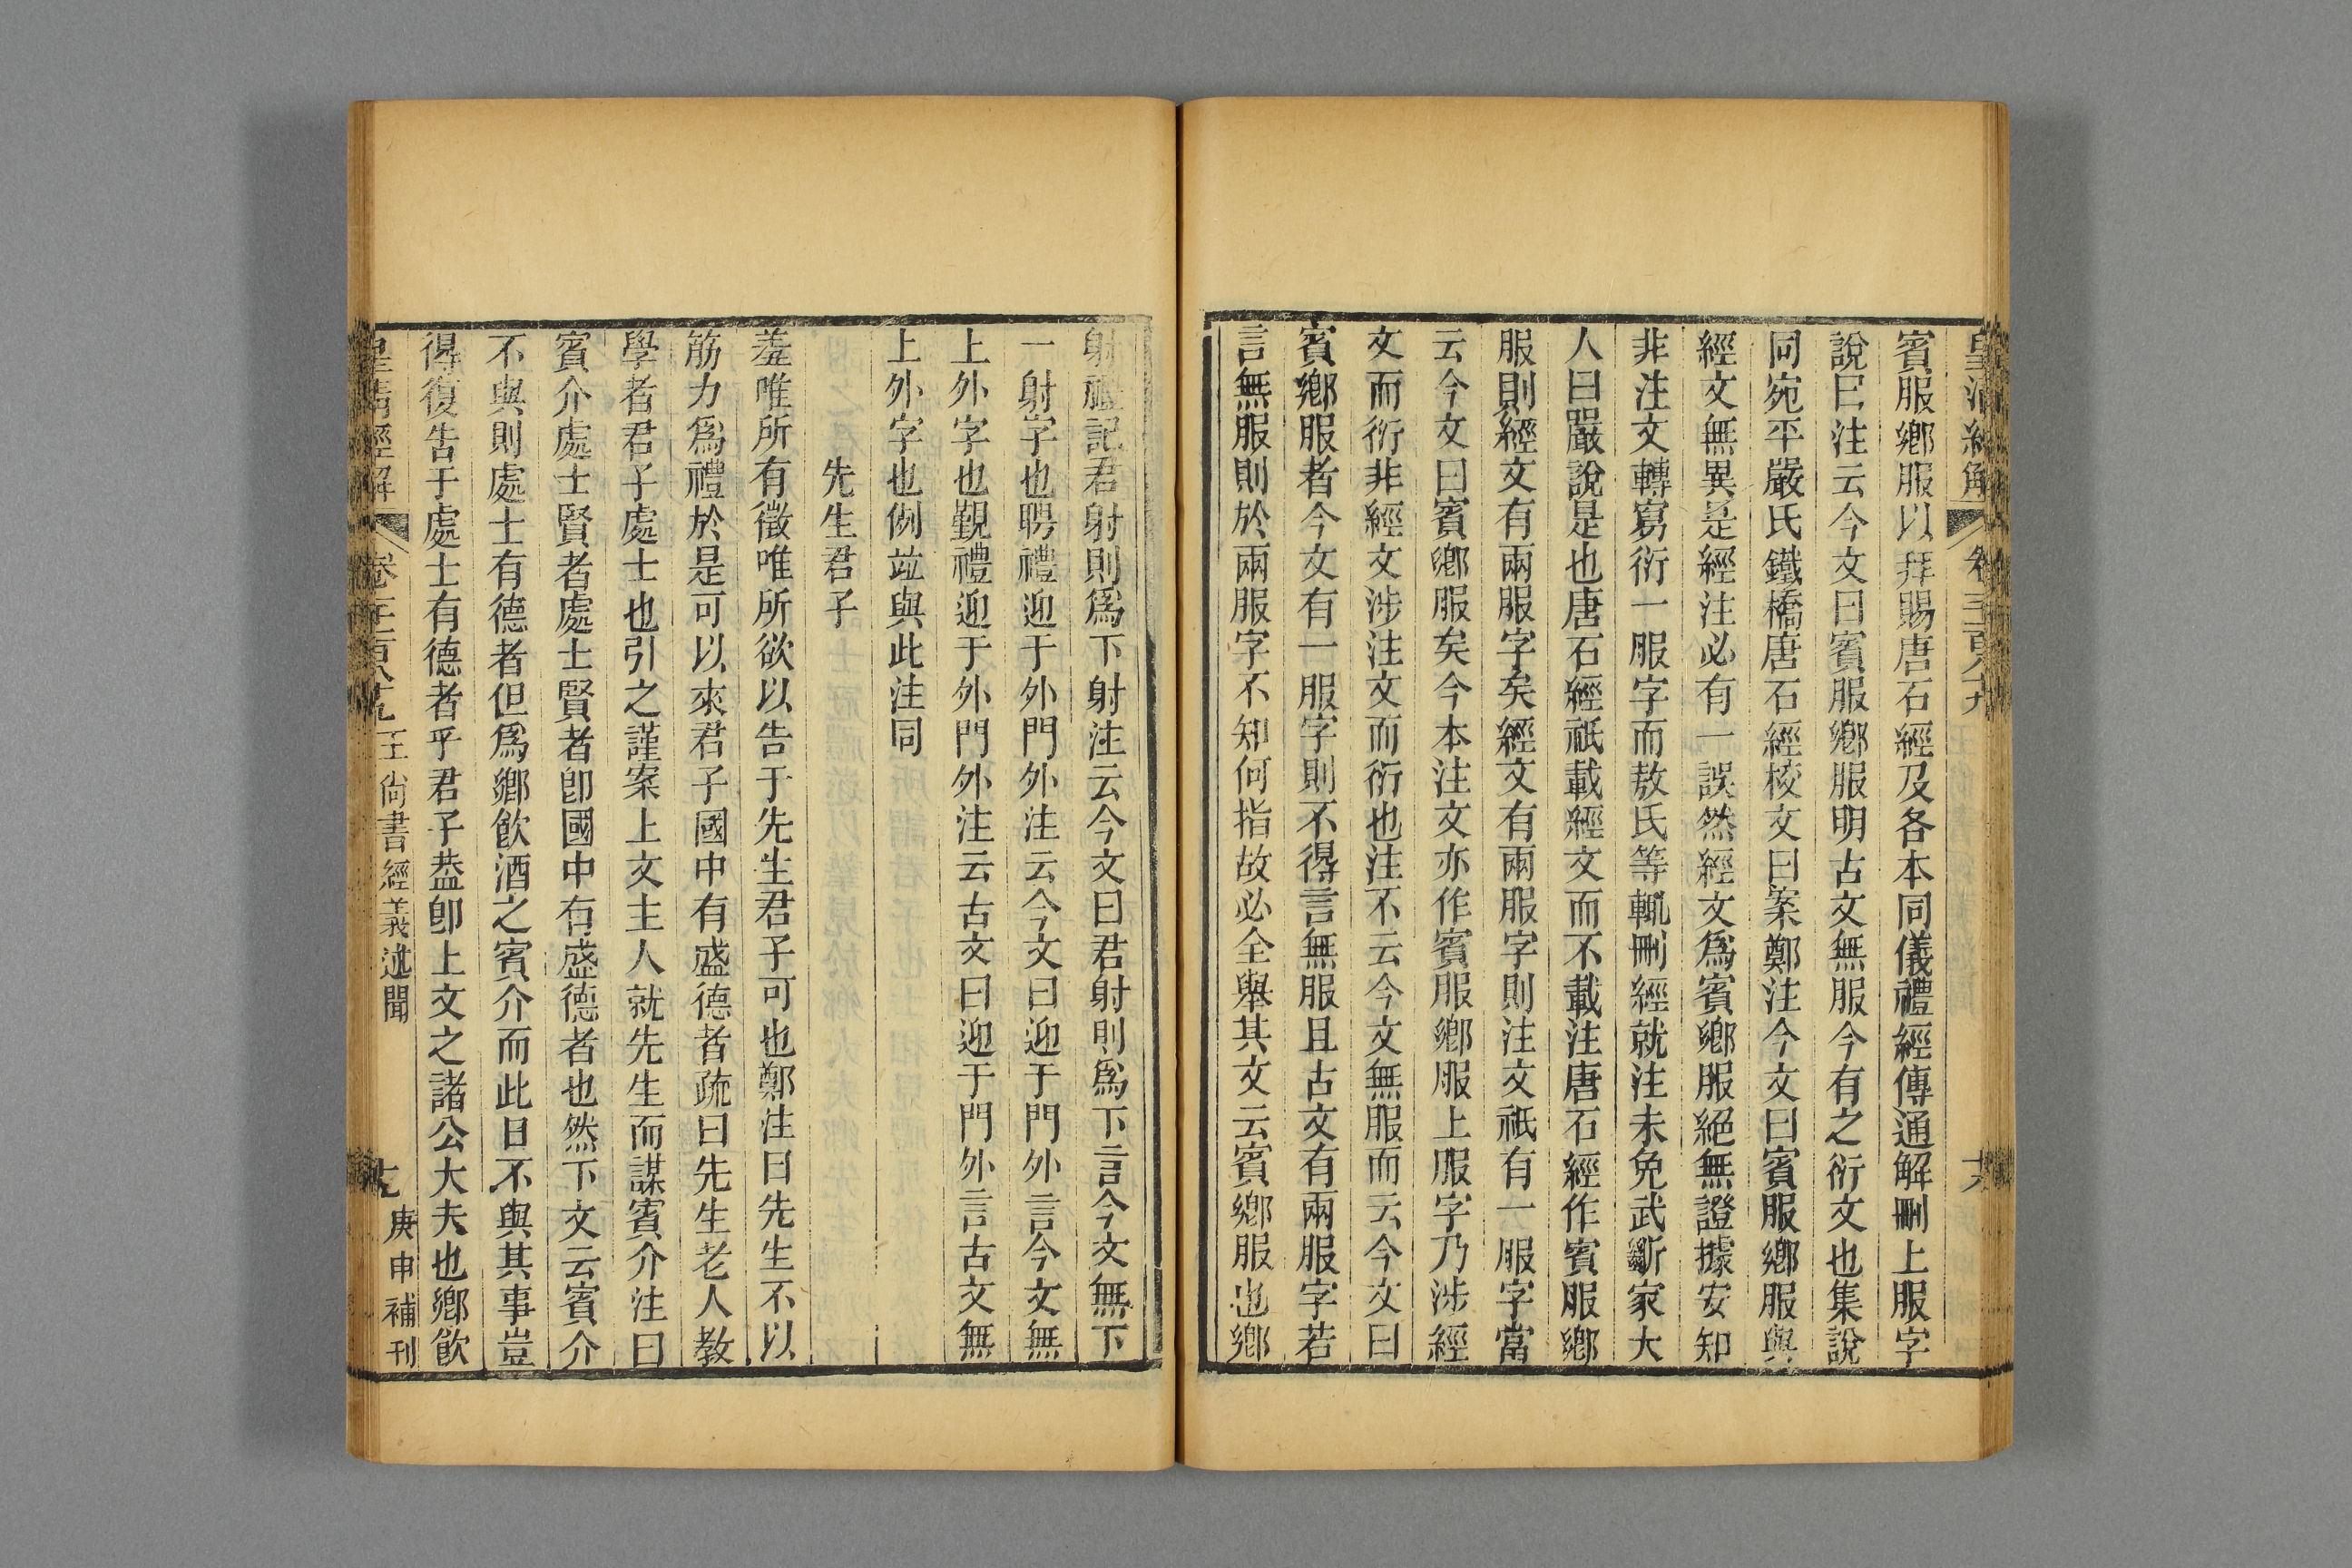 皇清經解
卷
賓服鄉服以拜賜唐石經及各本同儀禮經傳通解刪上服字
說曰注云今文曰賓服鄉服明古文無服今有之衍文也集說
同宛平嚴氏鐵橋唐石經校文曰案鄭注今文曰賓服鄉服與
經文無異是經注必有一誤然經文爲賓鄉服絕無證據安知
非注文轉寫衍一服字而敖氏等輒刪經就注未免武斷家大
人曰嚴說是也唐石經祇載經文而不載注唐石經作賓服鄉
服則經文有兩服字矣經文有兩服字則注文祇有一服字當
云今文曰賓鄉服矣今本注文亦作賓服鄉服上服字乃涉經
文而衍非經文涉注文而衍也注不云今文無服而云今文曰
賓鄉服者今文有一服字則不得言無服且古文有兩服字若
言無服則於兩服字不知何指故必全舉其文云賓鄉服也鄉
射禮記君射則爲下射注云今文曰君射則爲下言今文無下
一射字也聘禮迎于外門外注云今文曰迎于門外言今文無
上外字也覲禮迎于外門外注云古文曰迎于門外言古文無
上外字也例竝與此注同
先生君子
羞唯所有徵唯所欲以告于先生君子可也鄭注曰先生不以
筋力爲禮於是可以來君子國中有盛德者疏曰先生老人教
學者君子處士也引之謹案上文主人就先生而謀賓介注曰
賓介處士賢者處士賢者卽國中有盛德者也然下文云賓介
不與則處士有德者但爲鄉飮酒之賓介而此日不與其事豈
得復告于處士有德者乎君子葢卽上文之諸公大夫也鄉飮
皇清經解
卷
王尙書經義述聞
庚申補刊